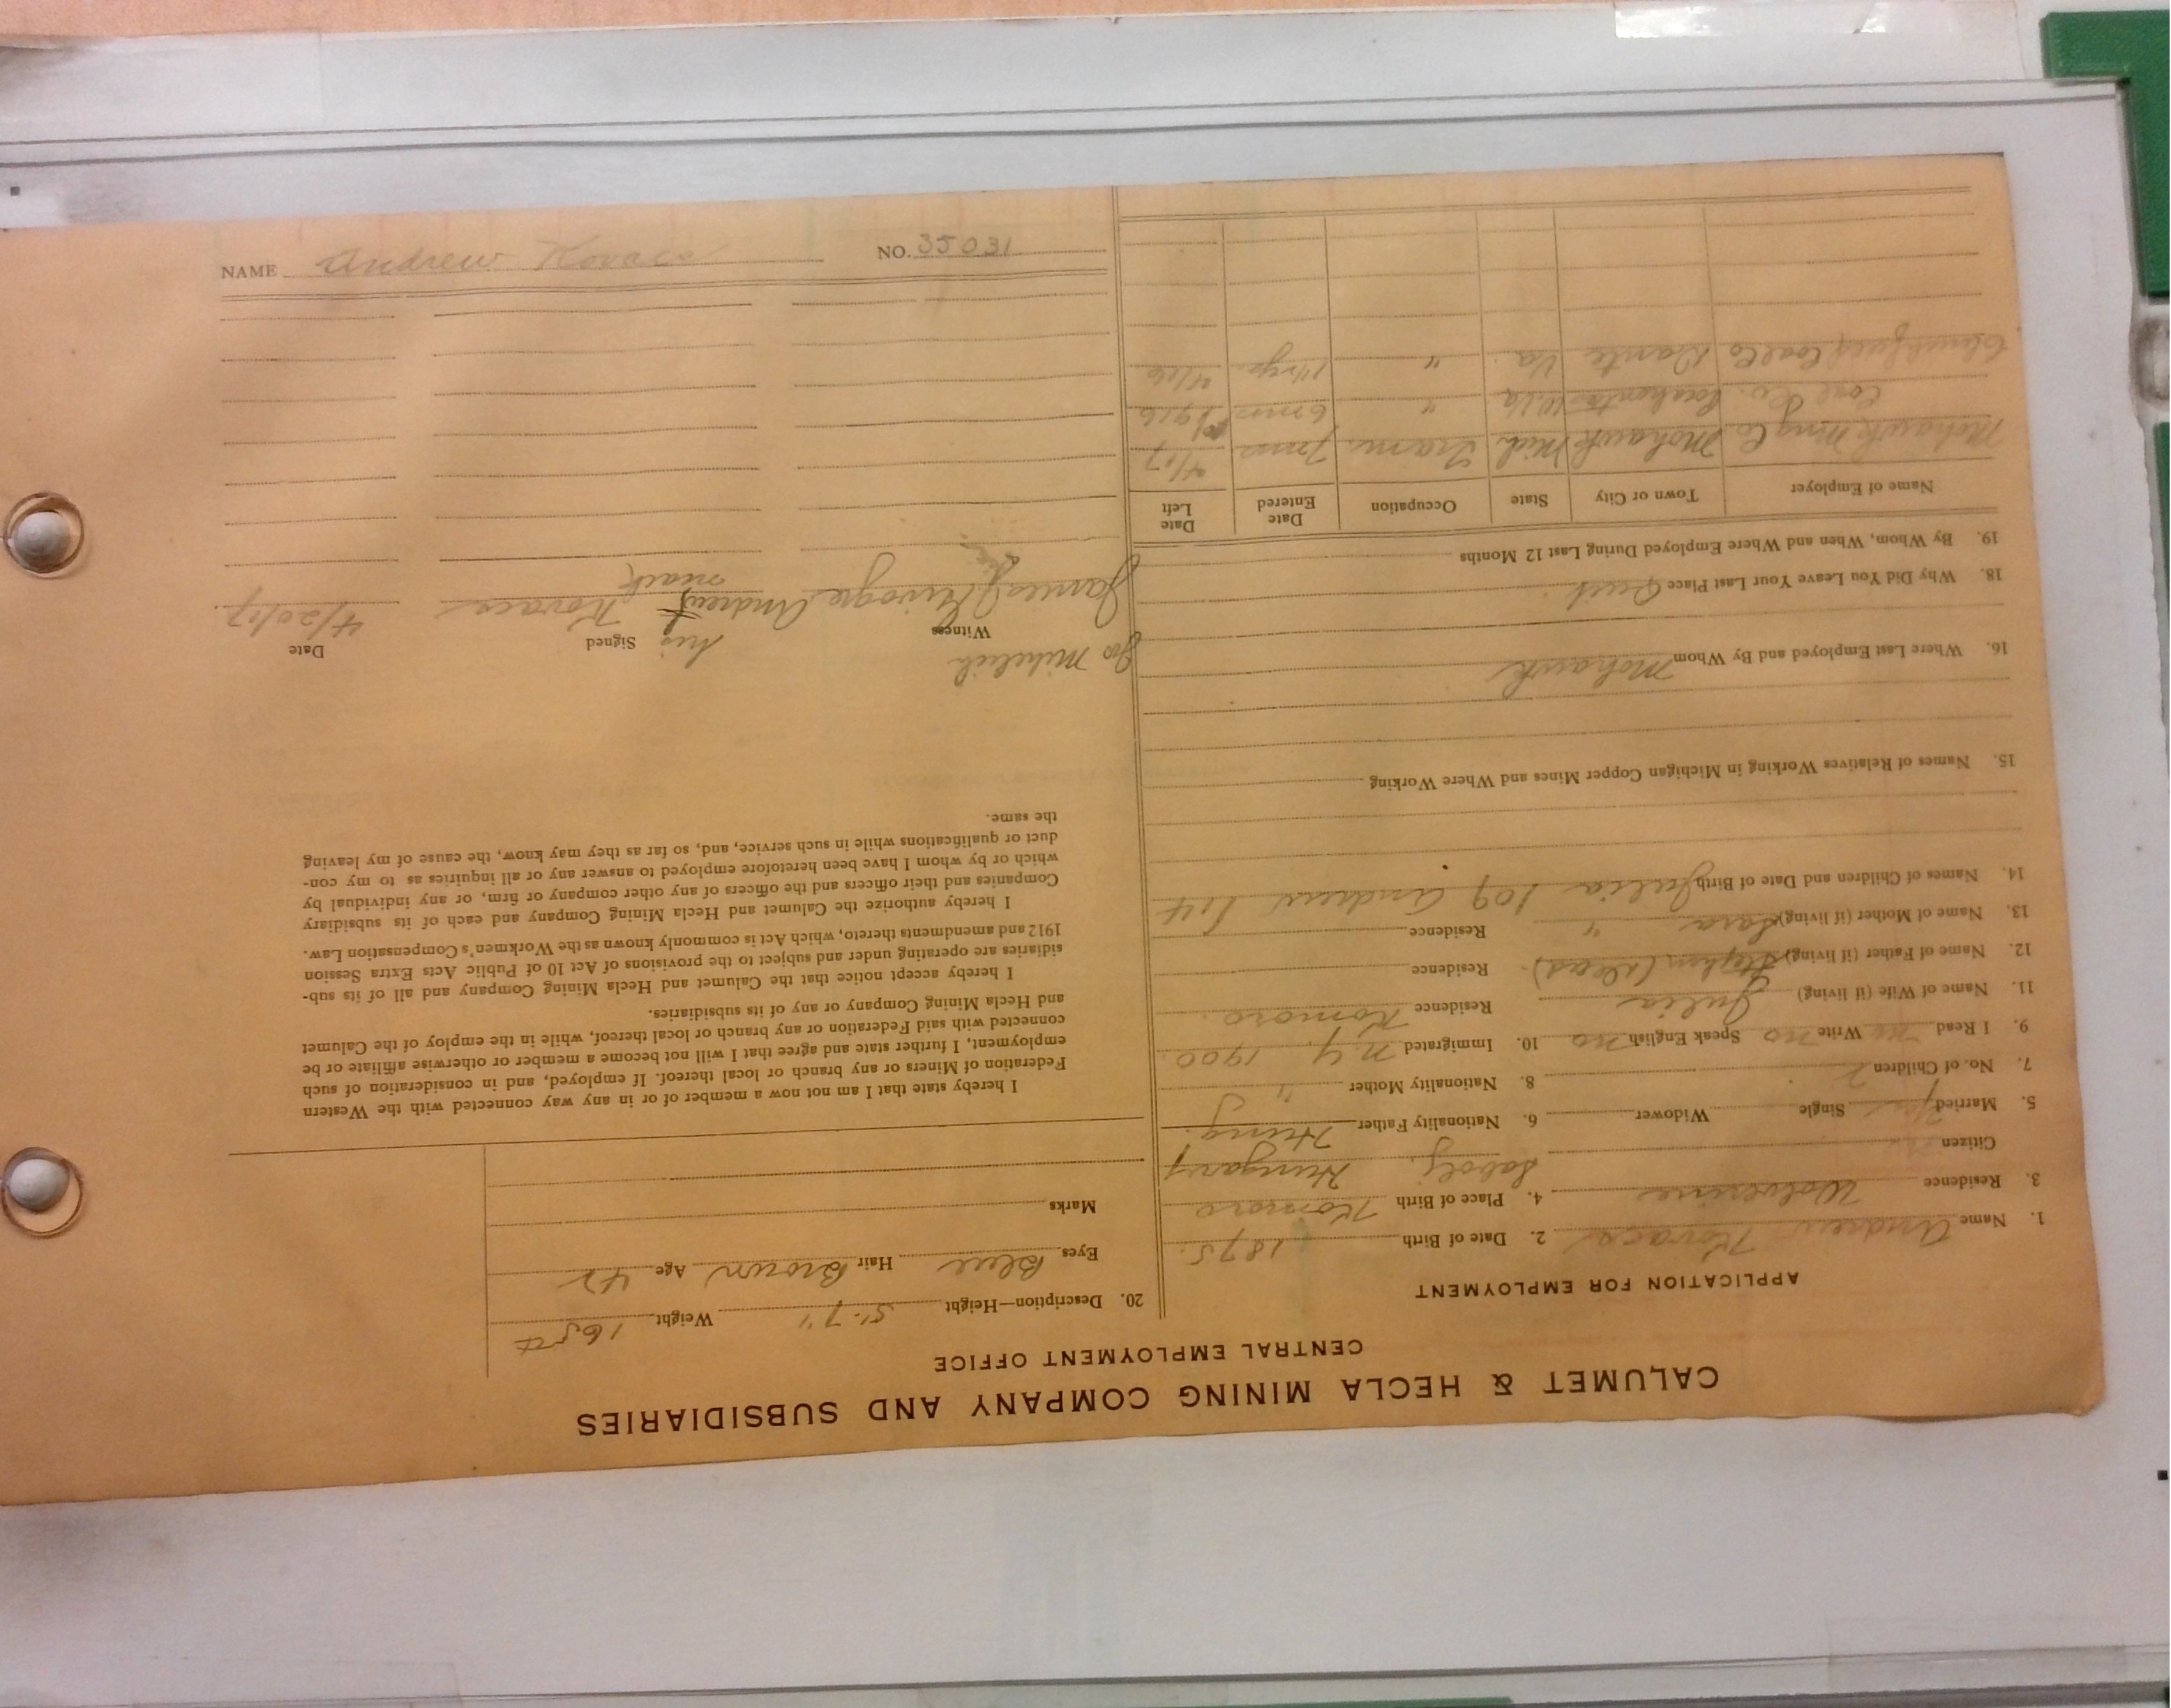 CALUMET & HECLA MINING COMPANY AND SUBSIDIARIES
CENTRAL EMPLOYMENT OFFICE
APPLICATION FOR EMPLOYMENT
1. Name Andrew Kovacs 2. Date of Birth 1875.
3. Residence Wolverine 4. Place of Birth Komoro
Citizen Saboly, Hungary
5. Married Yes Single Widower 6. Nationality Father Hung.
7. No. of Children 2 8. Nationality Mother "
9. I Read no Write no Speak English no 10. Immigrated N.Y. 1900.
11. Name of Wife (if living) Julia Residence Komoro.
12. Name of Father (if living) Stephen (dead). Residence
13. Name of Mother (if living) Sara " Residence
14. Names of Children and Date of Birth Julia 109 Andrew 114
15. Names of Relatives Working in Michigan Copper Mines and Where Working
16. Where Last Employed and By Whom Mohawk
18. Why Did You Leave Your Last Place Quit.
19. By Whom, When and Where Employed During Last 12 Months
Name of Employer Town or City State Occupation Date Entered Date Left
Mohawk Mng Co. Mohawk Mich. Tram. 7 mos 4/17
Coal Co. Pocahontas W.Va " 6 mos 1916
Coal Co Dante Va. " 1½ yr. 4/16
20. Description—Height 5-7" Weight 165#
Eyes Blue Hair Brown Age 42
Marks
I hereby state that I am not now a member of or in any way connected with the Western
Federation of Miners or any branch or local thereof. If employed, and in consideration of such
employment, I further state and agree that I will not become a member or otherwise affiliate or be
connected with said Federation or any branch or local thereof, while in the employ of the Calumet
and Hecla Mining Company or any of its subsidiaries.
I hereby accept notice that the Calumet and Hecla Mining Company and all of its sub-
sidiaries are operating under and subject to the provisions of Act 10 of Public Acts Extra Session
1912 and amendments thereto, which Act is commonly known as the Workmen's Compensation Law.
I hereby authorize the Calumet and Hecla Mining Company and each of its subsidiary
Companies and their officers and the officers of any other company or firm, or any individual by
which or by whom I have been heretofore employed to answer any or all inquiries as to my con-
duct or qualifications while in such service, and, so far as they may know, the cause of my leaving
the same.
Jos Mihelich
Witness his Signed Date
James Andrew X Kovacs 4/20/17
mark
NAME Andrew Kovacs NO. 35031